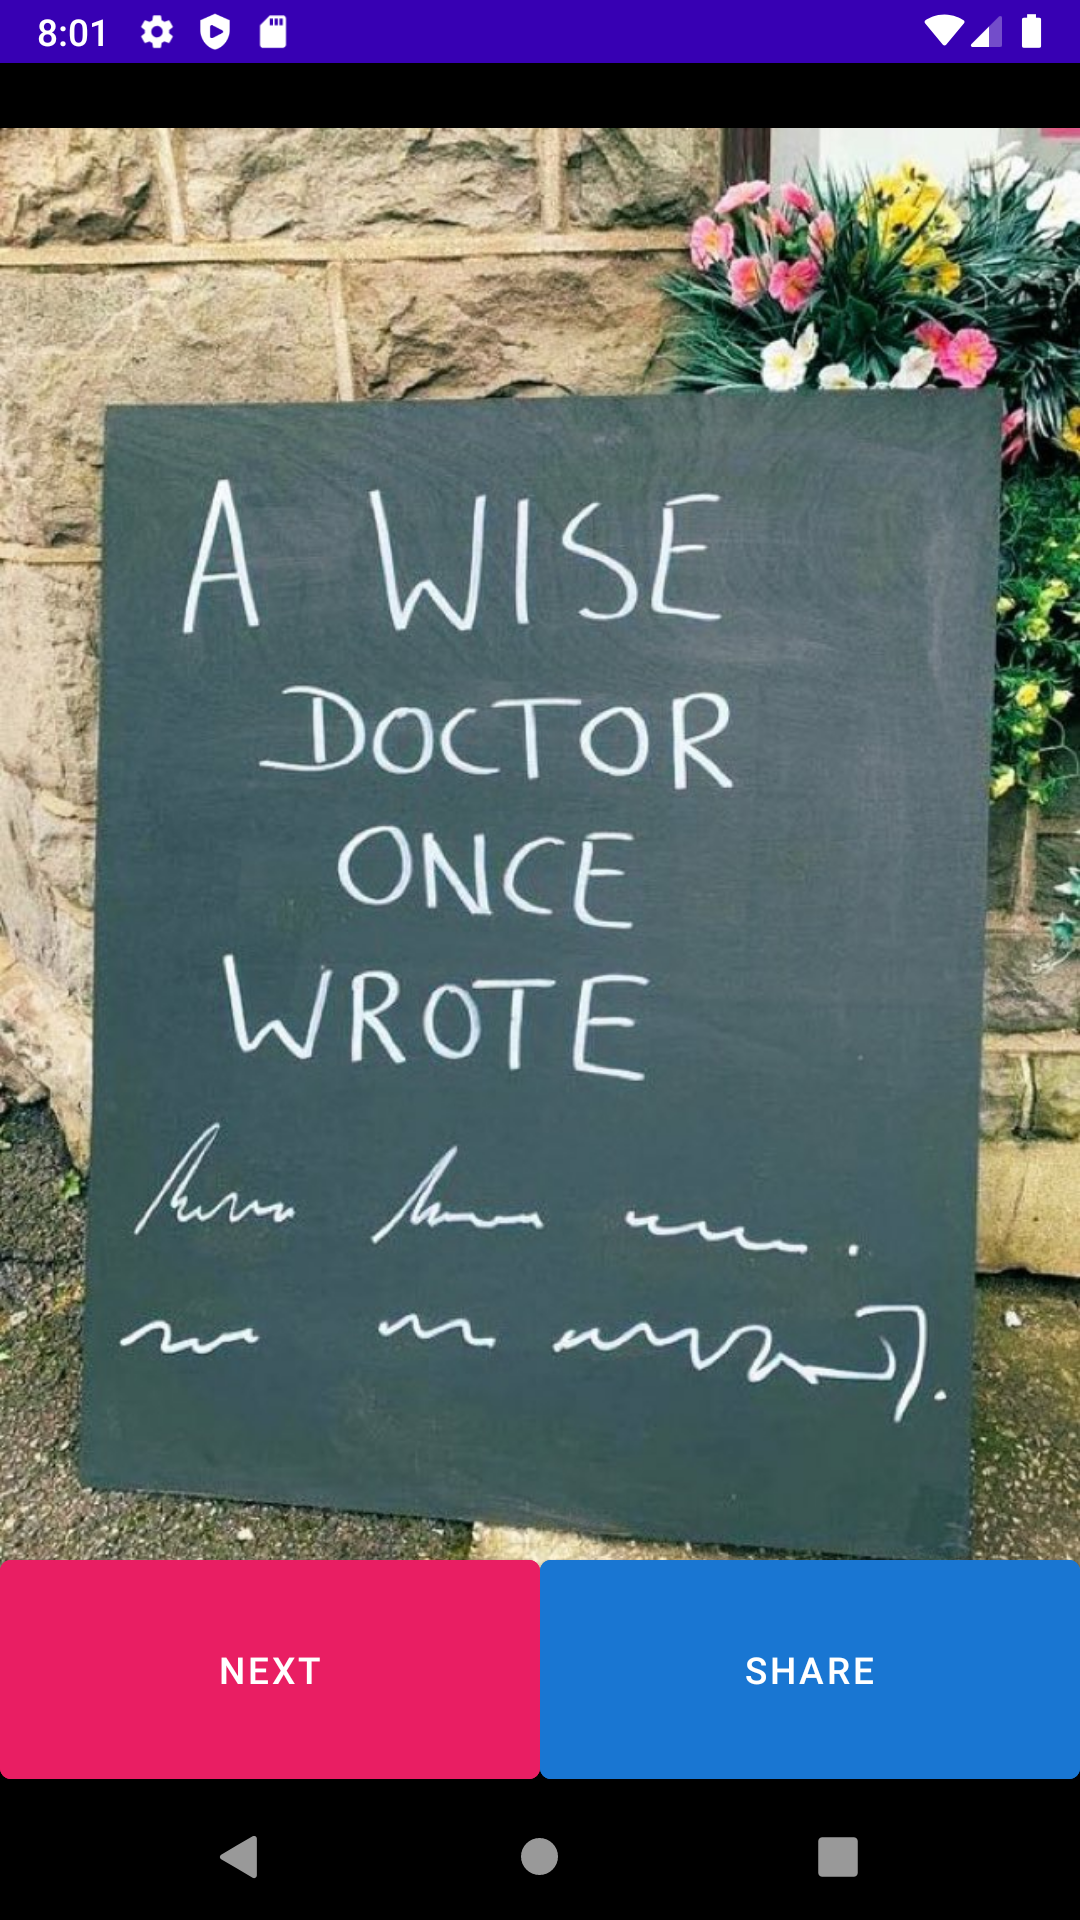 8:01
A WISE
DOCTOR
ONCE
WROTE
NEXT
SHARE